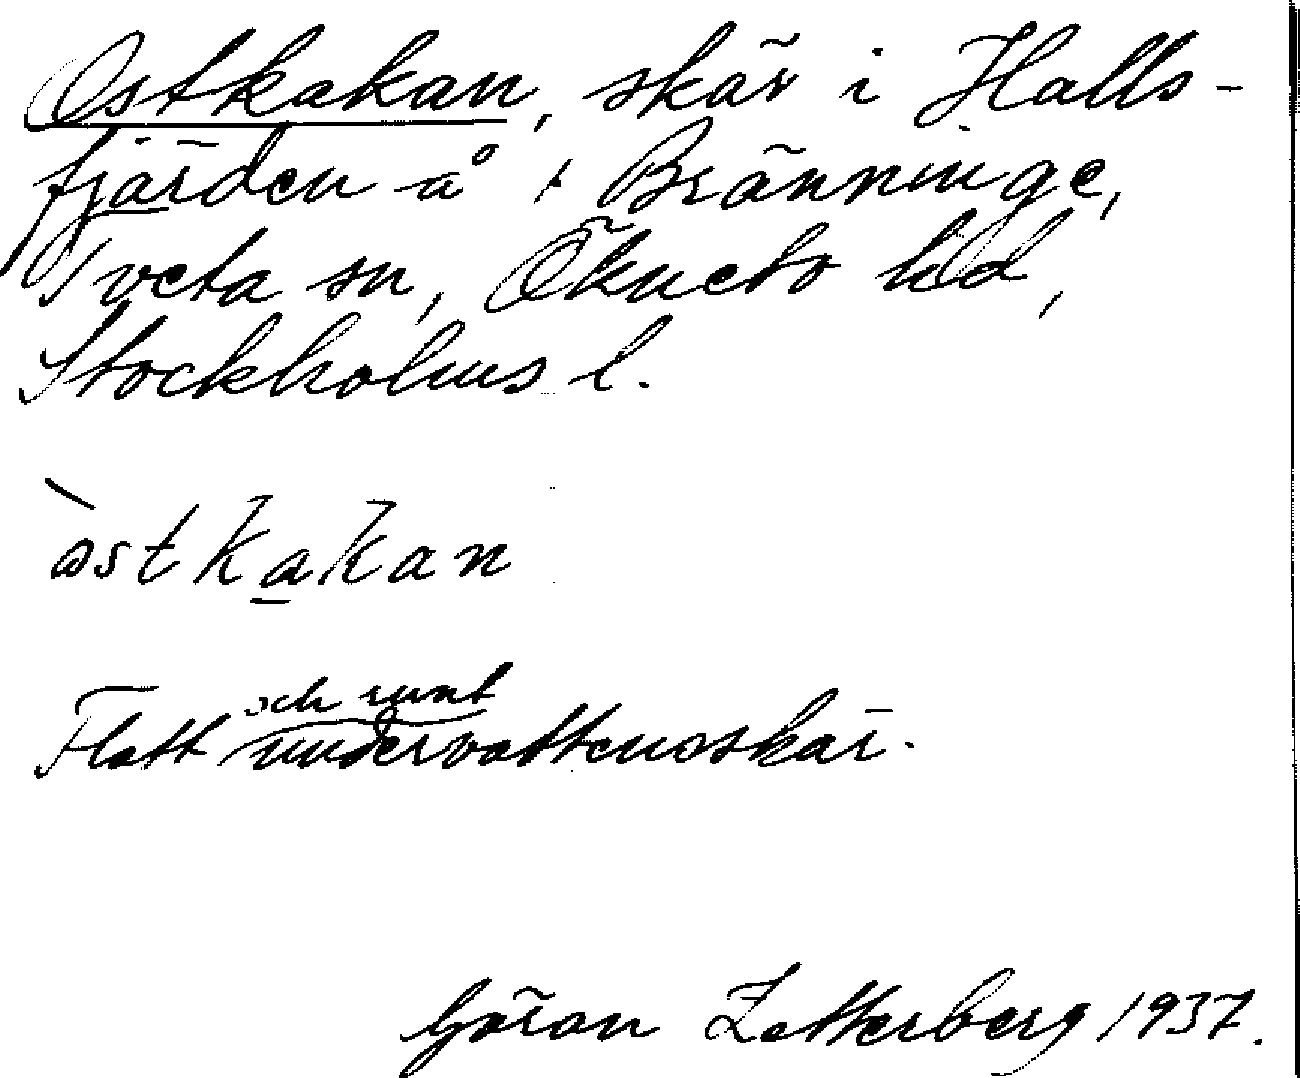 Ostkakan, skär i Halls-
fjärden å t Bränninge,
Tveta sn, Öknebo hd,
Stockholms l.
òstkakan
Flatt och runt undervattensskär.
Göran Zetterberg 1937.